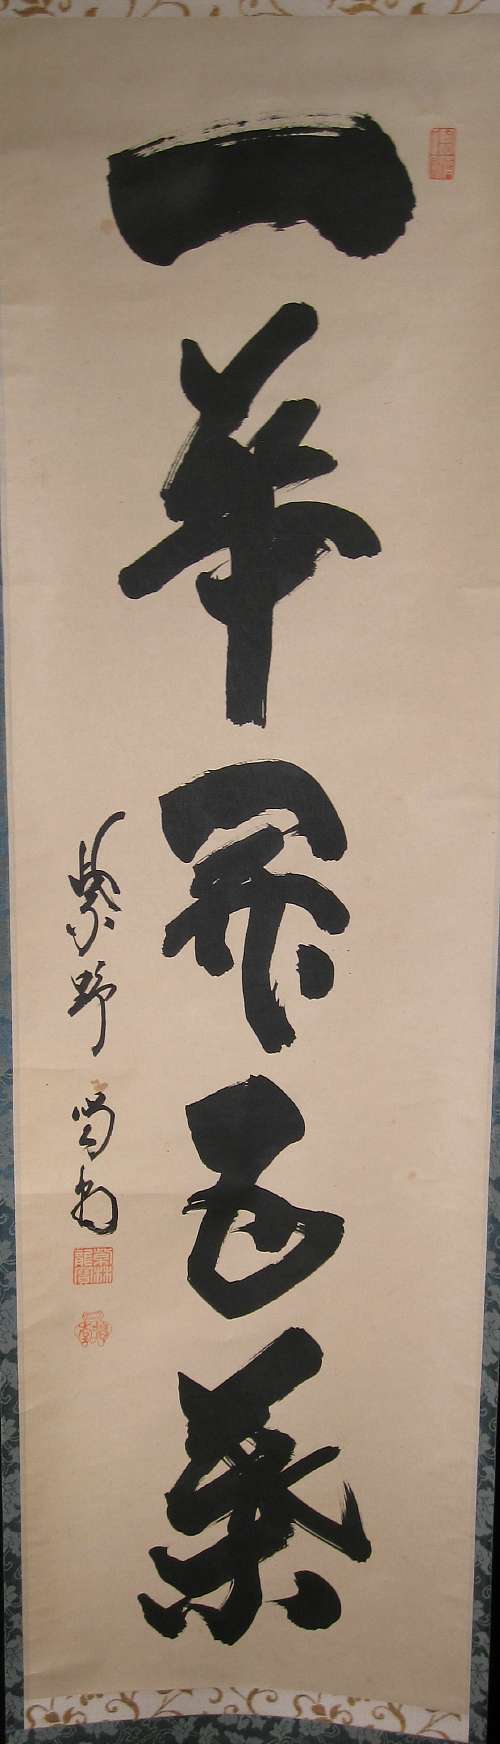 一華開五葉
紫野